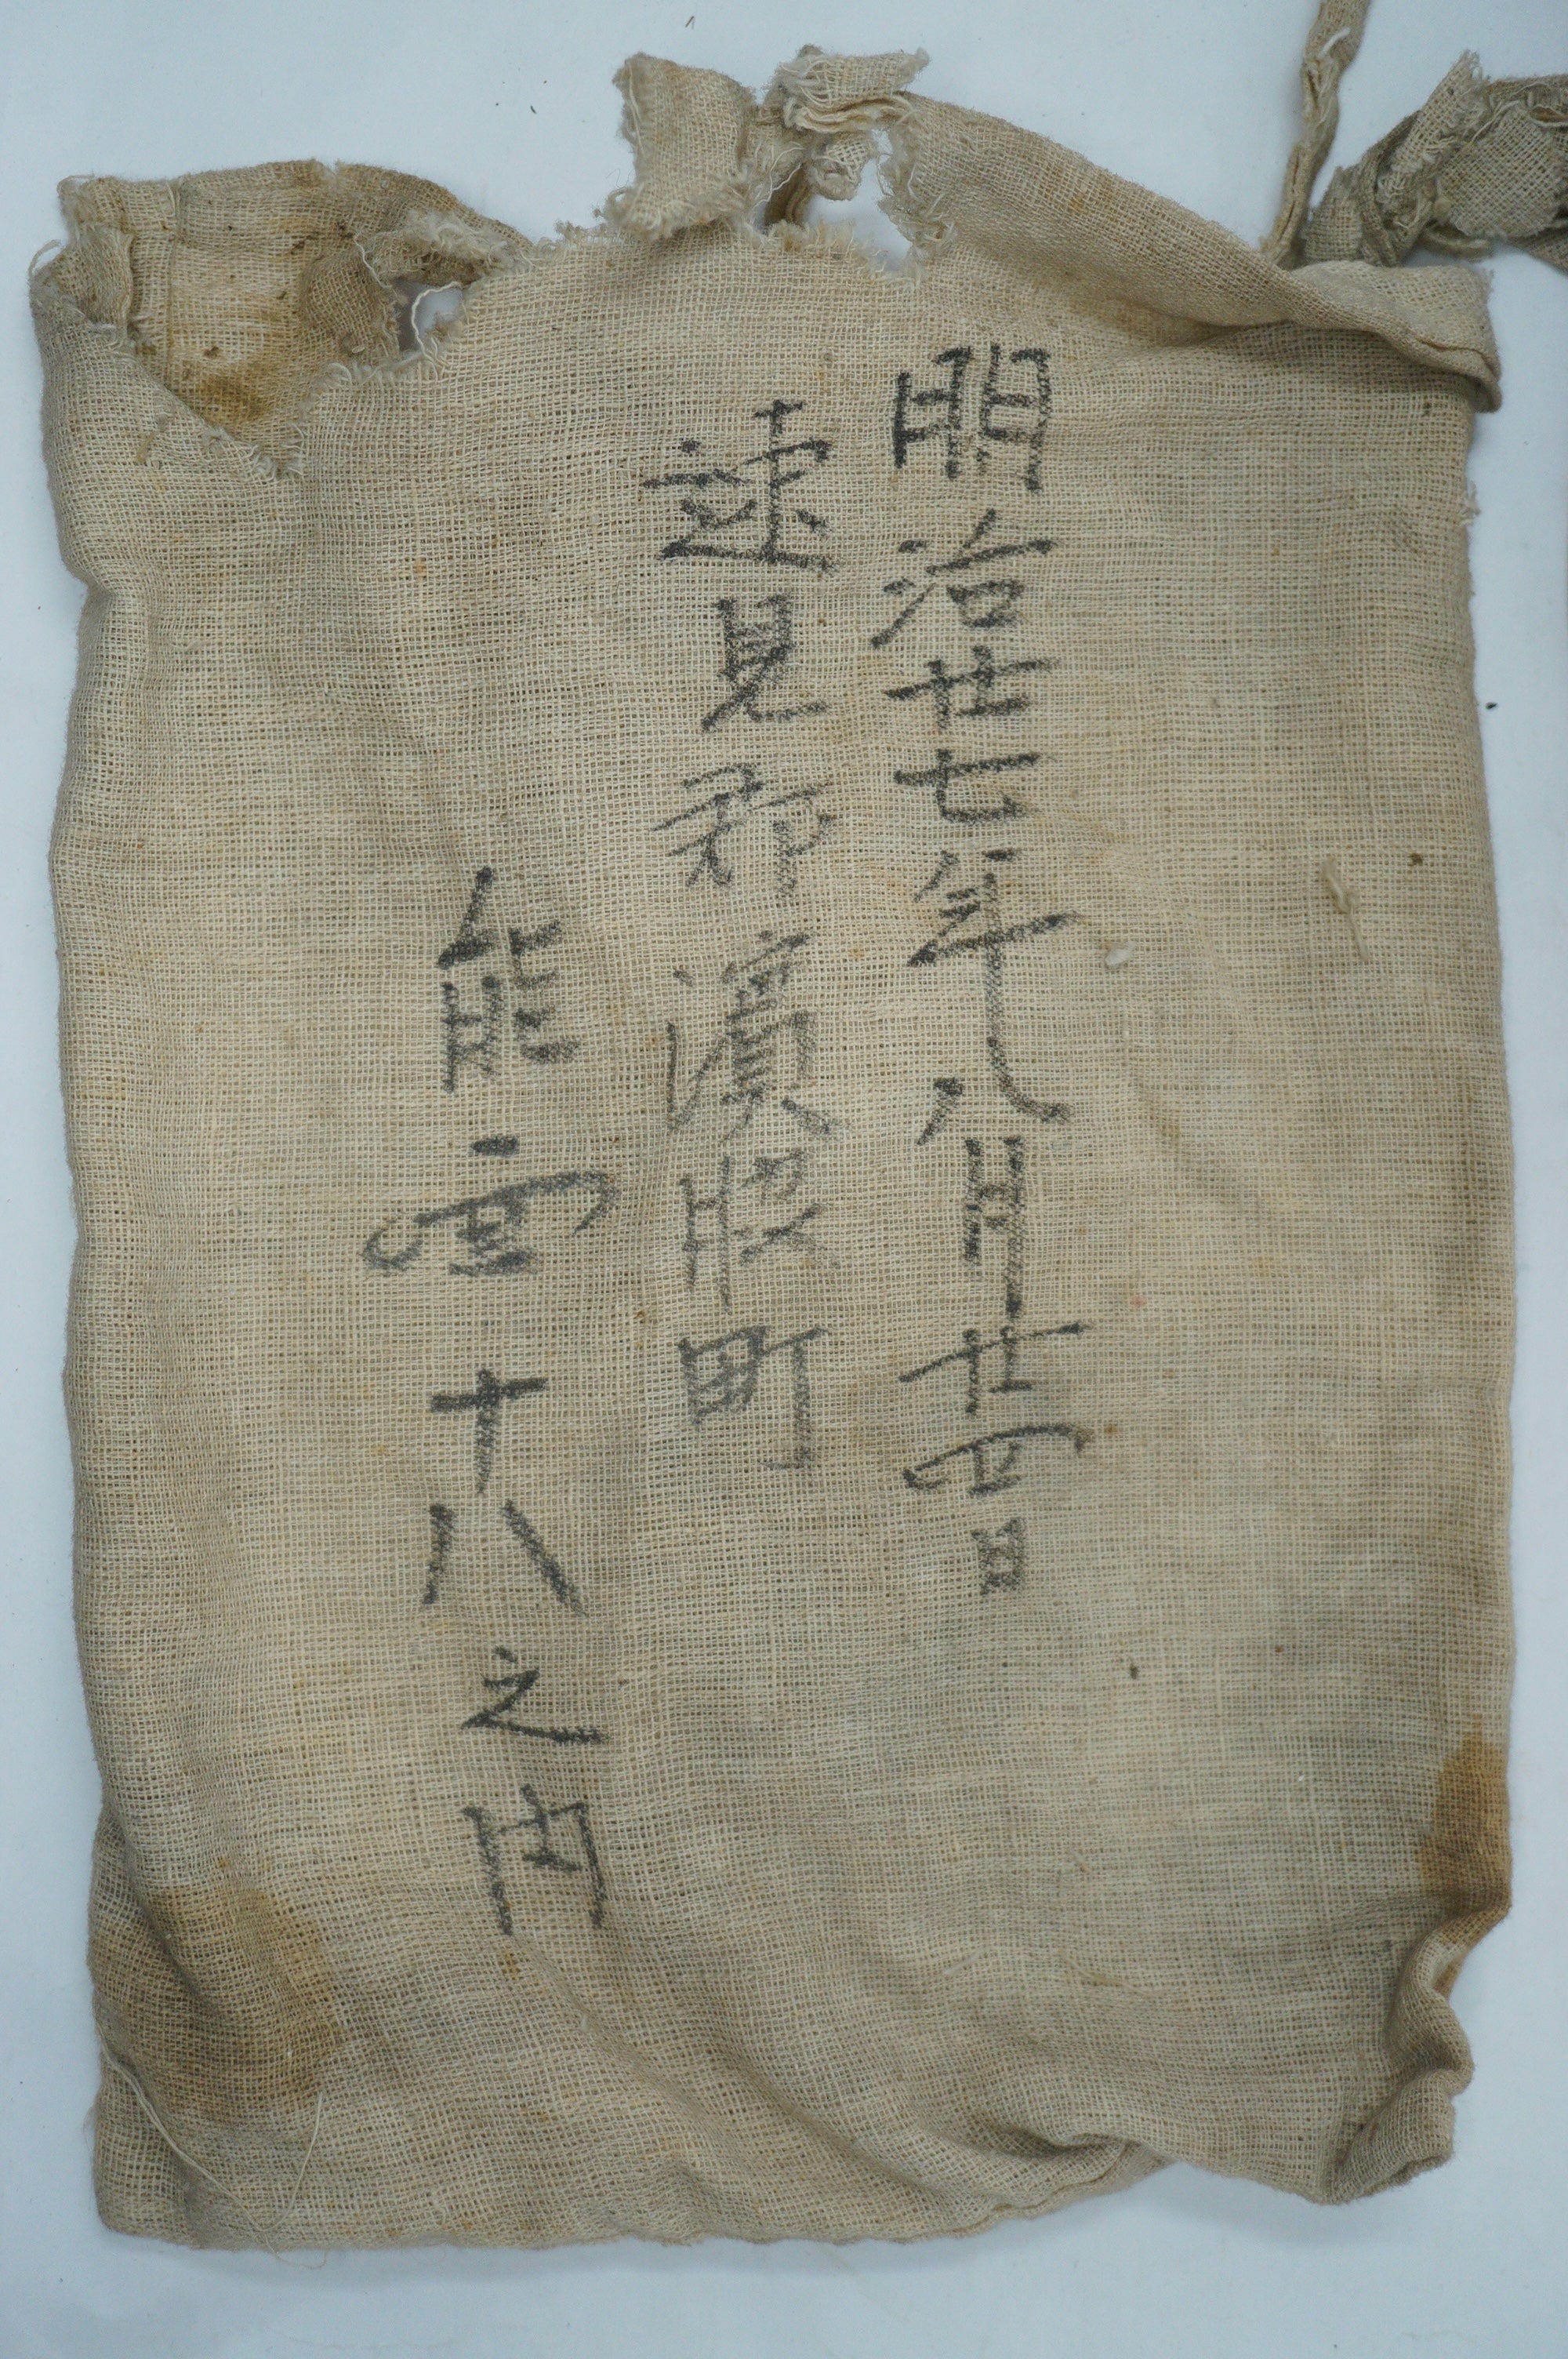 明治廿七年八月廿四日
速見郡濱脇町
能十八之内